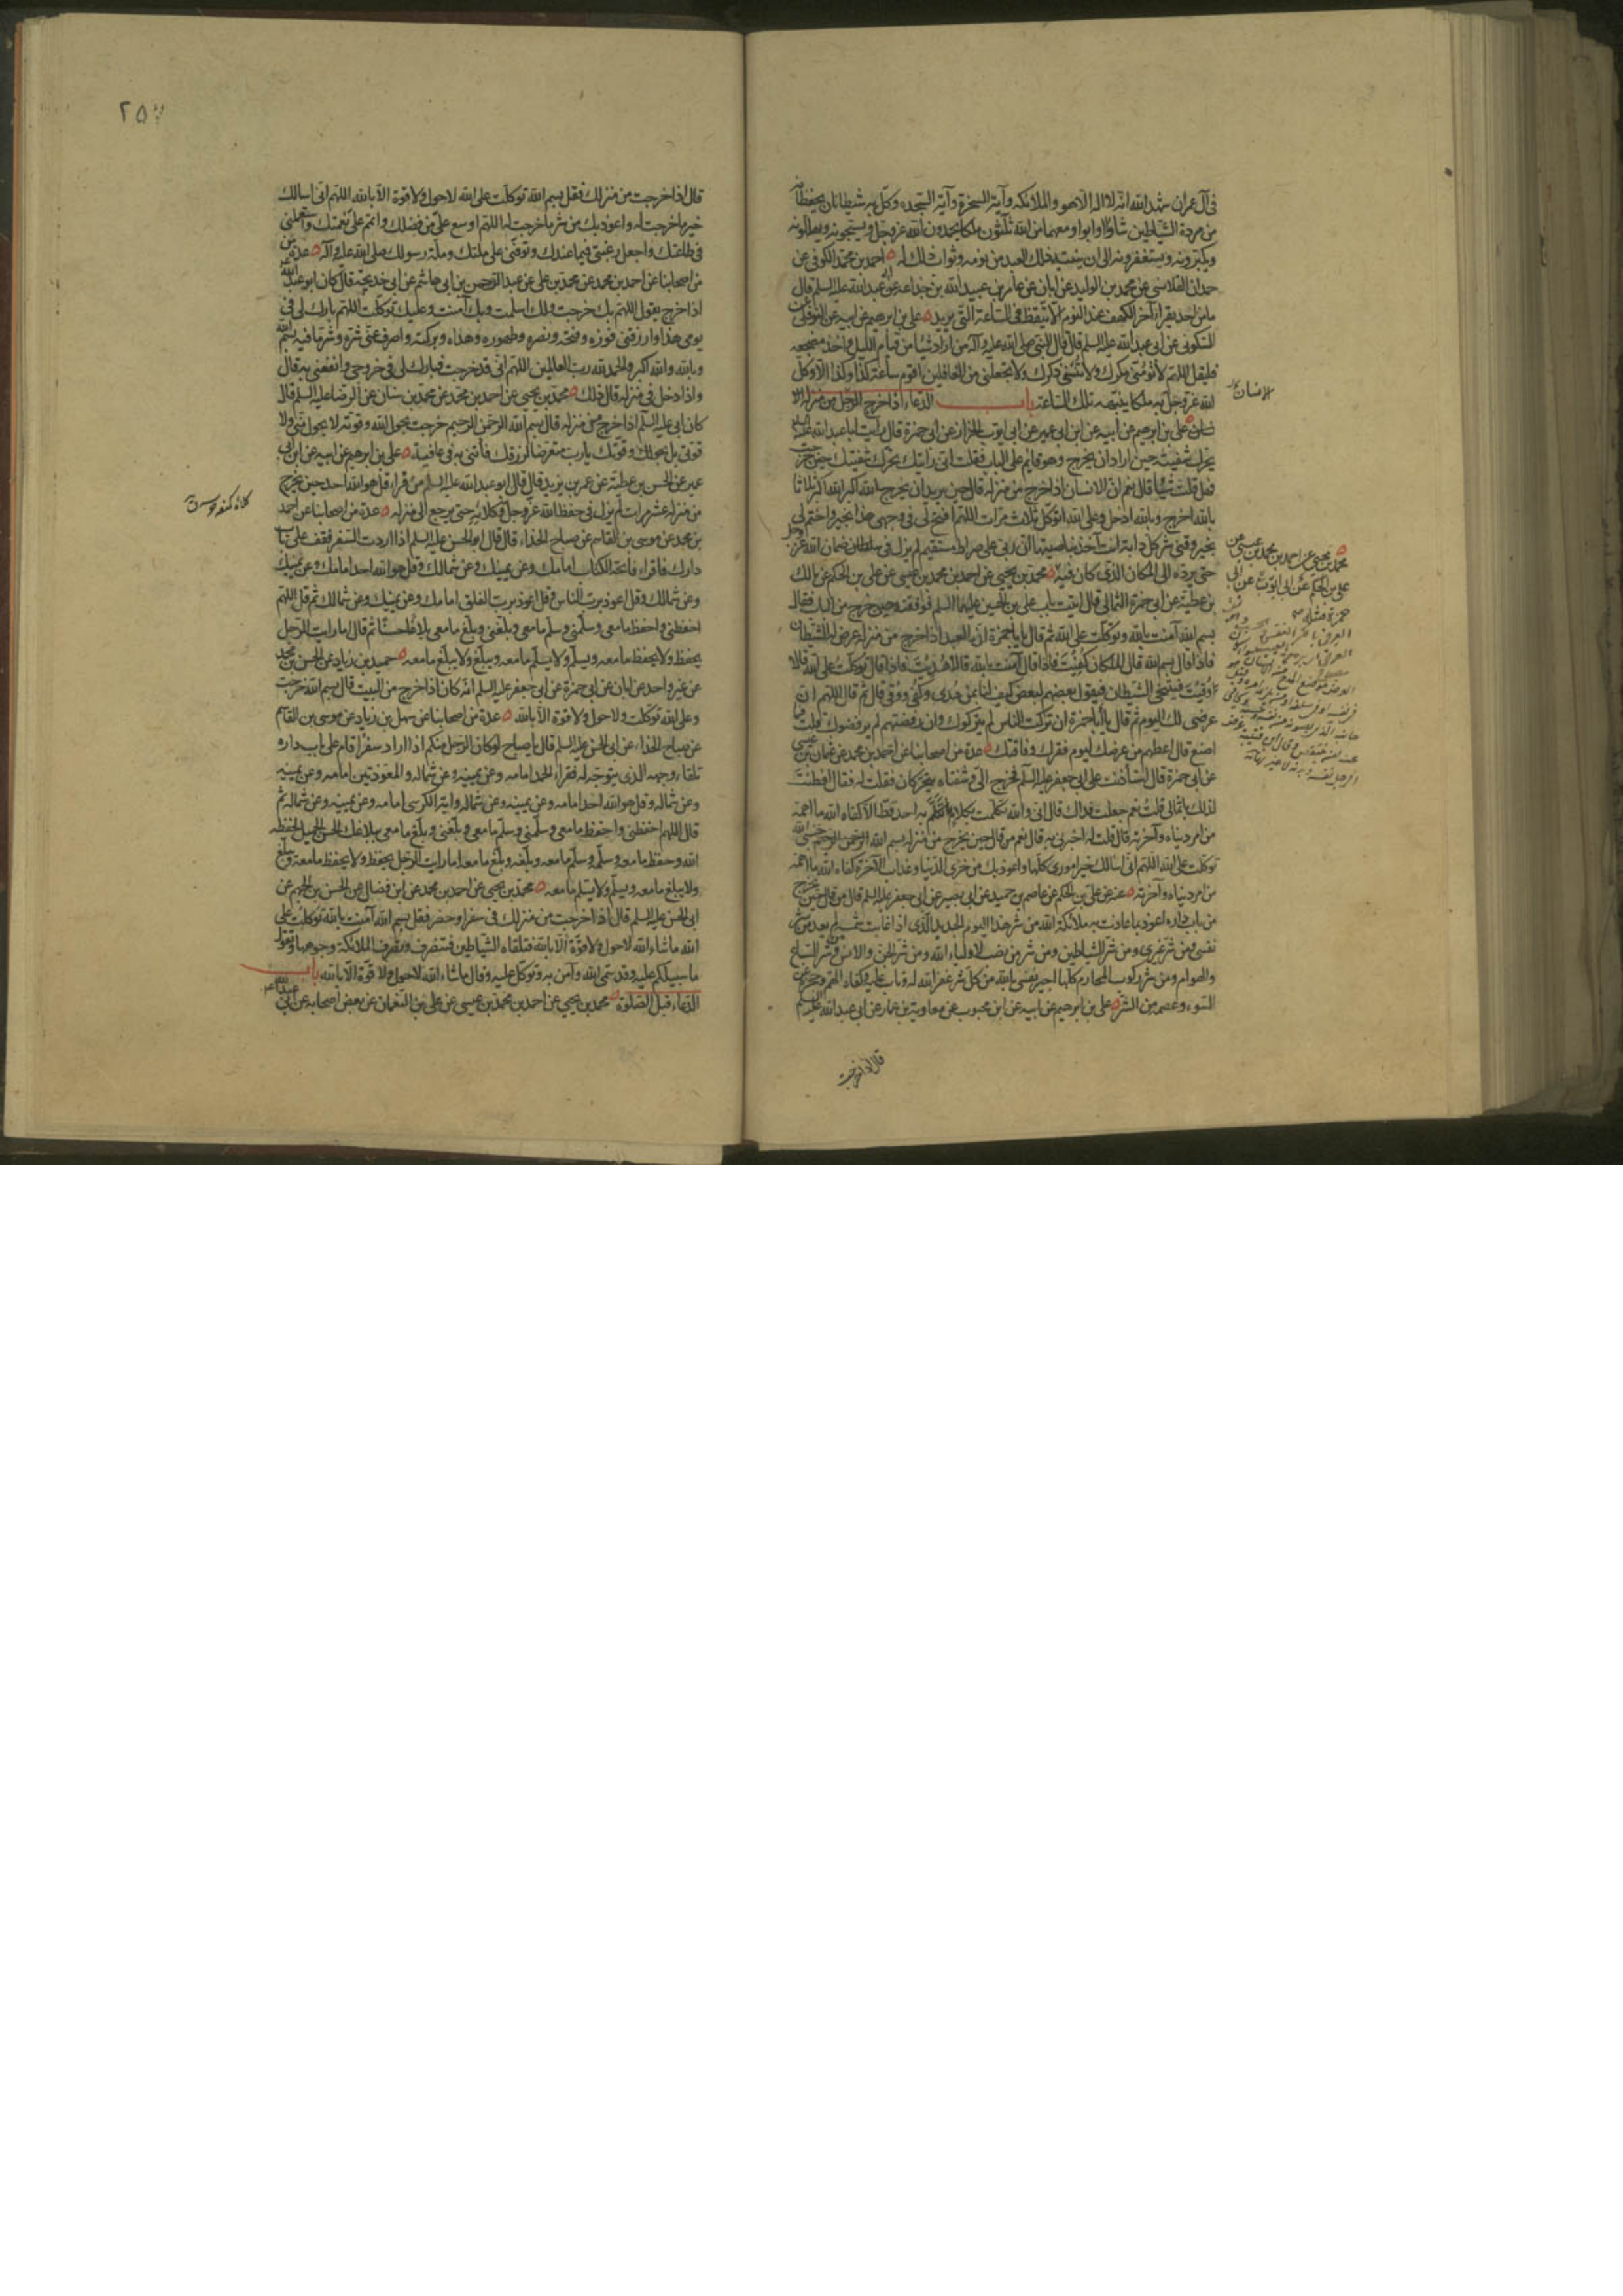 في آل عمران شهد الله انه لا اله الا هو والملائكة وآية السخرة وآية السجدة وكل به شيطانان يحفظانه
من مردة الشياطين شاؤا او ابوا ومعهما من الله ثلثون ملكا يحمدون الله عز وجل ويسبحونه ويهللونه
ويكبرونه ويستغفرونه الى ان ينتبه ذلك العبد من نومه وثواب ذلك له احمد بن محمد الكوفي عن
حمدان القلانسي عن محمد بن الوليد عن ابان عن عامر بن عبيد الله بن جذاعة عن ابي عبد الله عليه السلم قال
ما من احد يقرأ آخر الكهف عند النوم الا تيقظ في الساعة التي يريد علي بن ابرهيم عن ابيه عن النوفلي عن
السكوني عن ابي عبد الله عليه السلم قال قال النبي صلى الله عليه وآله من اراد شيئا من قيام الليل واخذ مضجعه
فليقل اللهم لا تؤمني مكرك ولا تنسني ذكرك ولا تجعلني من الغافلين اقوم ساعة كذا وكذا الا وكل
الله عز وجل به ملكا ينبهه تلك الساعة باب الدعاء اذا خرج الرجل من منزله
علي بن ابرهيم عن ابيه عن ابن ابي عمير عن ابي ايوب الخزاز عن ابي حمزة قال رايت ابا عبد الله عليه السلم
يحرك شفتيه حين اراد ان يخرج وهو قايم على الباب فقلت اني رايتك تحرك شفتيك حين خرجت
فهل قلت شيئا قال نعم ان الانسان اذا خرج من منزله قال حين يريد ان يخرج الله اكبر الله اكبر ثلاثا
بالله اخرج وبالله ادخل وعلى الله اتوكل ثلاث مرات اللهم افتح لي في وجهي هذا بخير واختم لي
بخير وقني شر كل دابة انت آخذ بناصيتها ان ربي على صراط مستقيم لم يزل في ضمان الله عز وجل
حتى يرده الى المكان الذي كان فيه محمد بن يحيى عن احمد بن محمد بن عيسى عن علي بن الحكم عن مالك
بن عطية عن ابي حمزة الثمالي قال اتيت باب علي بن الحسين عليهما السلم فوافقته حين خرج من الباب فقال
بسم الله آمنت بالله وتوكلت على الله ثم قال يا با حمزة ان العبد اذا خرج من منزله عرض له الشيطان
فاذا قال بسم الله قال الملكان كفيت فاذا قال آمنت بالله قالا هديت فاذا قال توكلت على الله قالا
وقيت فيتنحى الشيطان فيقول بعضهم لبعض كيف لنا بمن هدي وكفي ووقي قال ثم قال اللهم ان
عرضي لك اليوم ثم قال يا ابا حمزة ان تركت الناس لم يتركوك وان رفضتهم لم يرفضوك قلت فما
اصنع قال اعطهم من عرضك ليوم فقرك وفاقتك عدة من اصحابنا عن احمد بن محمد عن عثمان بن عيسى
عن ابي حمزة قال استأذنت على ابي جعفر عليه السلم فخرج الي وشفتاه يتحركان فقلت له فقال افطنت
لذلك يا ثمالي قلت نعم جعلت فداك قال اني والله تكلمت بكلام ما تكلم به احد قط الا كفاه الله ما اهمه
من امر دنياه وآخرته قال قلت له اخبرني به قال نعم من قال حين يخرج من منزله بسم الله الرحمن الرحيم حسبي الله
توكلت على الله اللهم اني اسالك خير اموري كلها واعوذ بك من خزي الدنيا وعذاب الآخرة كفاه الله ما اهمه
من امر دنياه وآخرته عنه عن علي بن الحكم عن عاصم بن حميد عن ابي بصير عن ابي جعفر عليه السلم قال من قال حين يخرج
من باب داره اعوذ بما عاذت به ملائكة الله من شر هذا اليوم الجديد الذي اذا غابت شمسه لم يعد من شر
نفسي ومن شر غيري ومن شر الشياطين ومن شر من نصب لاولياء الله ومن شر الجن والانس ومن شر السباع
والهوام ومن شر ركوب المحارم كلها اجير نفسي بالله من كل شر غفر الله له وتاب عليه وكفاه الهم وحجزه عن
السوء وعصمه من الشر علي بن ابرهيم عن ابيه عن ابن محبوب عن معاوية بن عمار عن ابي عبد الله عليه السلم
قال اذا خرجت
الانسان
محمد بن يحيى عن احمد بن محمد بن عيسى عن
علي بن الحكم عن ابي ايوب عن ابي
حمزة مثله
٢٥
قال اذا خرجت من منزلك فقل بسم الله توكلت على الله لا حول ولا قوة الا بالله اللهم اني اسالك
خير ما خرجت له واعوذ بك من شر ما خرجت له اللهم اوسع علي من فضلك واتمم علي نعمتك واستعملني
في طاعتك واجعل رغبتي فيما عندك وتوفني على ملتك وملة رسولك صلى الله عليه وآله عدة
من اصحابنا عن احمد بن محمد عن محمد بن علي عن عبد الرحمن بن ابي هاشم عن ابي خديجة قال كان ابو عبد الله
اذا خرج يقول اللهم بك خرجت ولك اسلمت وبك آمنت وعليك توكلت اللهم بارك لي في
يومي هذا وارزقني فوزه وفتحه ونصره وطهوره وهداه وبركته واصرف عني شره وشر ما فيه بسم الله
وبالله والله اكبر والحمد لله رب العالمين اللهم اني قد خرجت فبارك لي في خروجي وانفعني به قال
واذا دخل في منزله قال ذلك محمد بن يحيى عن احمد بن محمد عن محمد بن سنان عن الرضا عليه السلم قال
كان ابي عليه السلم اذا خرج من منزله قال بسم الله الرحمن الرحيم خرجت بحول الله وقوته لا بحول مني ولا
قوتي بل بحولك وقوتك يا رب متعرضا لرزقك فأتني به في عافية علي بن ابرهيم عن ابيه عن ابن ابي
عمير عن الحسن بن عطية عن عمر بن يزيد قال قال ابو عبد الله عليه السلم من قراء قل هو الله احد حين يخرج
من منزله عشر مرات لم يزل في حفظ الله عز وجل وكلائه حتى يرجع الى منزله عدة من اصحابنا عن احمد
بن محمد عن موسى بن القاسم عن صباح الحذاء قال قال ابو الحسن عليه السلم اذا اردت السفر فقف على باب
دارك فاقراء فاتحة الكتاب امامك وعن يمينك وعن شمالك وقل هو الله احد امامك وعن يمينك
وعن شمالك وقل اعوذ برب الناس وقل اعوذ برب الفلق امامك وعن يمينك وعن شمالك ثم قل اللهم
احفظني واحفظ ما معي وسلمني وسلم ما معي وبلغني وبلغ ما معي بلاغا حسنا ثم قال اما رايت الرجل
يحفظ ولا يحفظ ما معه ويسلم ولا يسلم ما معه ويبلغ ولا يبلغ ما معه حميد بن زياد عن الحسن بن محمد
عن غير واحد عن ابان عن ابي حمزة عن ابي جعفر عليه السلم انه كان اذا خرج من البيت قال بسم الله خرجت
وعلى الله توكلت ولا حول ولا قوة الا بالله عدة من اصحابنا عن سهل بن زياد عن موسى بن القاسم
عن صباح الحذاء عن ابي الحسن عليه السلم قال يا صباح لو كان الرجل منكم اذا اراد سفرا قام على باب داره
تلقاء وجهه الذي يتوجه له فقراء الحمد امامه وعن يمينه وعن شماله والمعوذتين امامه وعن يمينه
وعن شماله وقل هو الله احد امامه وعن يمينه وعن شماله واية الكرسي امامه وعن يمينه وعن شماله ثم
قال اللهم احفظني واحفظ ما معي وسلمني وسلم ما معي وبلغني وبلغ ما معي ببلاغك الحسن الجميل لحفظه
الله وحفظ ما معه وسلمه وسلم ما معه وبلغه وبلغ ما معه اما رايت الرجل يحفظ ولا يحفظ ما معه ويبلغ
ولا يبلغ ما معه ويسلم ولا يسلم ما معه محمد بن يحيى عن احمد بن محمد عن ابن فضال عن الحسن بن الجهم عن
ابي الحسن عليه السلم قال اذا خرجت من منزلك في سفر او حضر فقل بسم الله آمنت بالله توكلت على
الله ما شاء الله لا حول ولا قوة الا بالله فتلقاه الشياطين فتنصرف وتضرب الملائكة وجوهها وتقول
ما سبيلكم عليه وقد سمى الله وآمن به وتوكل عليه وقال ما شاء الله لا حول ولا قوة الا بالله باب
الدعاء قبل الصلوة محمد بن يحيى عن احمد بن محمد بن عيسى عن علي بن النعمان عن بعض اصحابه عن ابي عبد الله